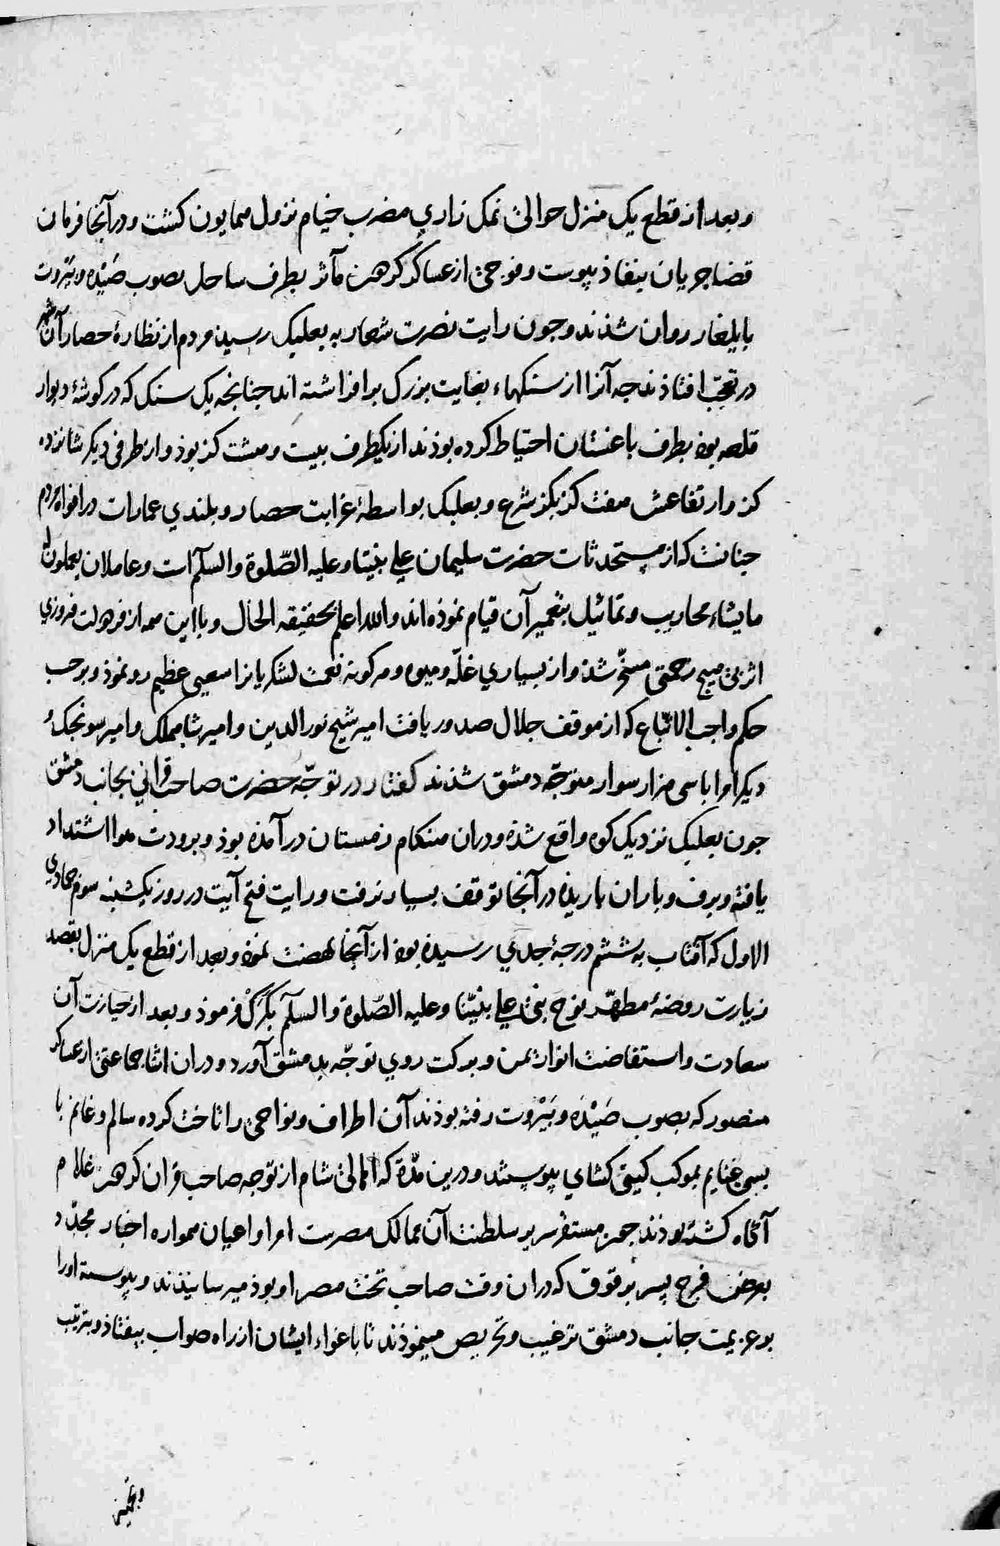 وبعد از قطع یک منزل حوالی نمک زاری مضرب خیام نزول همایون کشت ودر آنجا فرمان
قضا جریان بنفاذ پیوست و فوجی از عساکر کردهن مآثر بطرف ساحل بصوب صَیْده و بَیْروت
بایلغار روان شذند و جون رایت نصرت شعار به بعلبک رسید مردم از نظارهٔ حصار آن شهر
در تعجّب افتاذند جه آنرا از سنکهاء بغایت بزرک برافراشته اند جنانجه یک سنک که در کوشهٔ دیوار
قلعه بوذ بطرف باغستان احتیاط کرده بوذند از یکطرف بیست و هشت کز بوذ و از طرفی دیکر شانزده
کز و ارتفاعش هفت کز بکز شرع و بعلبک بواسطهٔ غرابت حصار و بلندی عمارات در افواه مردم
جنانست که از مستحدثات حضرت سلیمان علی نبینا وعلیه الصّلوة والسلام است وعاملان یعملون له
مایشاء محاریب وتماثیل بتعمیر آن قیام نموذه اند والله اعلم بحقیقة الحال و با این همه از فر دولت فیروزی
اثر بی هیج زحمتی مسخّر شذ و از بسیاری غلّه و میوه و هرکونه نعمت لشکریانرا سعتی عظیم رو نموذ و برحب
حکم واجب الاتّباع که از موقف جلال صدور یافت امیر شیخ نورالدین و امیر شاهملک و امیر سونجک و
دیکر امرا باسی هزار سوار متوجّه دمشق شذند کفتار در توجّه حضرت صاحب قرانی بجانب دمشق
جون بعلبک نزدیک کوه واقع شذه و دران هنکام زمستان درآمذه بوذ و برودت هوا اشتداد
یافته و برف و باران باریذه در آنجا توقف بسیار نرفت و رایت فتح آیت در روز یکشنبه سوم جمادی
الاول که آفتاب به ششم درجهٔ جدی رسیذه بوذ از آنجا نهضت نموذ وبعد از قطع یک منزل بقصد
زیارت روضهٔ مطهّر نوح نبی علی نبیّنا وعلیه الصّلوة والسلام بکَرَک فرموذ و بعد از حیازت آن
سعادت و استفاضت انوار یمن و برکت روی توجّه بدمشق آورد و دران اثنا جماعتی از عساکر
منصور که بصوب صَیْدَه و بَیْرُوت رفته بوذند آن اطراف و نواحی را تاخت کرده سالم و غانم با
بسی غنایم بموکب کیتی کشای پیوستند و درین مدّة که اهالی شام از توجه صاحب قران کردهن غلام
آکاه کشته بوذند جمعی مستقر سریر سلطنت آن ممالک مصرست امرا و اعیان همواره اخبار مجدّد
بعرض فرج پسر برقوق که دران وقت صاحب تخت مصر او بوذ میرسانیذند و پیوسته اورا
بر عزیمت جانب دمشق ترغیب و تحریص مینموذند تا باغواء ایشان از راه صواب بیفتاذ و بترتیب
و تجهیز